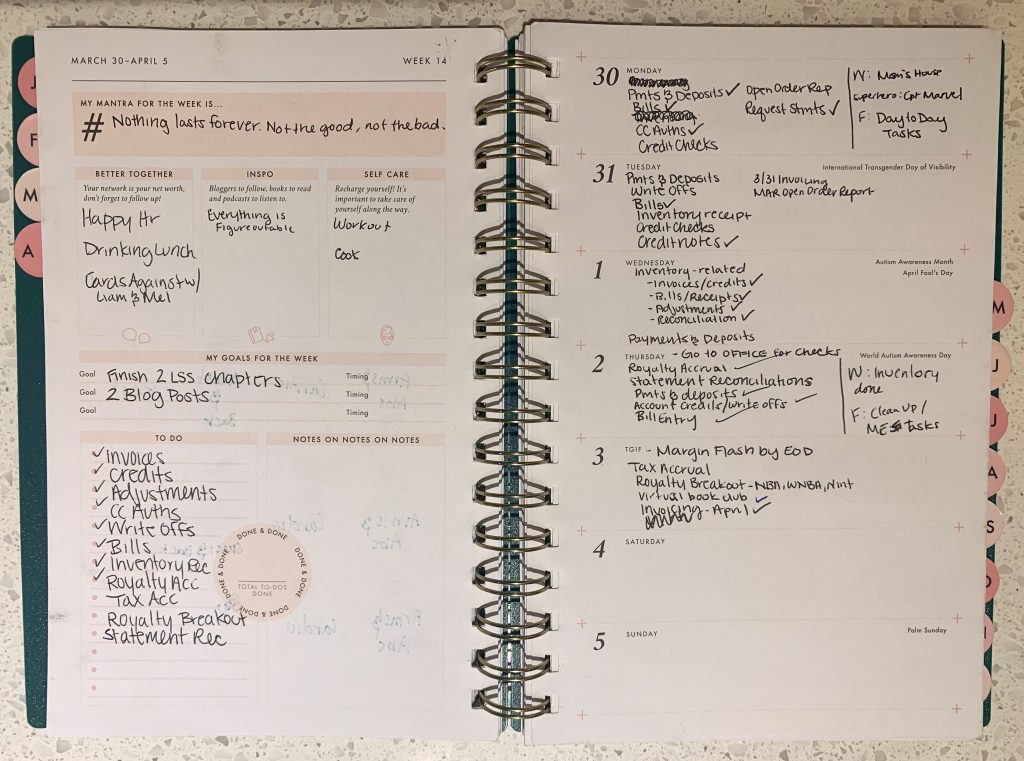 J
F
M
A
MARCH 30–APRIL 5
WEEK 14
MY MANTRA FOR THE WEEK IS...
# Nothing lasts forever. Not the good, not the bad.
BETTER TOGETHER
Your network is your net worth,
don't forget to follow up!
Happy Hr
Drinking Lunch
Cards Against w/
Liam & Mel
INSPO
Bloggers to follow, books to read
and podcasts to listen to.
Everything is
Figureoutable
SELF CARE
Recharge yourself! It's
important to take care of
yourself along the way.
Workout
Cook
MY GOALS FOR THE WEEK
Goal Finish 2 LSS chapters Timing
Goal 2 Blog Posts Timing
Goal Timing
TO DO
✓Invoices
✓Credits
✓Adjustments
CC Auths
✓Write Offs
✓Bills
✓Inventory Rec
✓Royalty Acc
Tax Acc
Royalty Breakout
Statement Rec
DONE & DONE DONE & DONE DONE & DONE DONE & DONE
TOTAL TO-DOS
DONE
NOTES ON NOTES ON NOTES
30 MONDAY
Pmts & Deposits ✓
Bills ✓
CC Auths ✓
Credit Checks
Open Order Rep
Request Stmts ✓
W: Mom's House
Superhero: Cpt Marvel
F: Day to Day
Tasks
31 TUESDAY
International Transgender Day of Visibility
Pmts & Deposits
Write Offs
Bills ✓
Inventory receipt
Credit Checks
Credit notes ✓
3/31 Invoicing
MAR Open Order Report
1 WEDNESDAY
Autism Awareness Month
April Fool's Day
Inventory-related
- Invoices/credits ✓
- Bills/Receipts ✓
- Adjustments ✓
- Reconciliation ✓
Payments & Deposits
2 THURSDAY - Go to OFFICE for Checks
World Autism Awareness Day
Royalty Accrual ✓
Statement Reconciliations
Pmts & deposits ✓
Account Credits/Write offs ✓
Bill Entry ✓
W: Inventory
done
F: Clean Up/
ME Tasks
3 TGIF - Margin Flash by EOD
Tax Accrual
Royalty Breakout - NBA, WNBA, Nint
Virtual book club ✓
Invoicing - April ✓
4 SATURDAY
5 SUNDAY
Palm Sunday
M
J
J
A
S